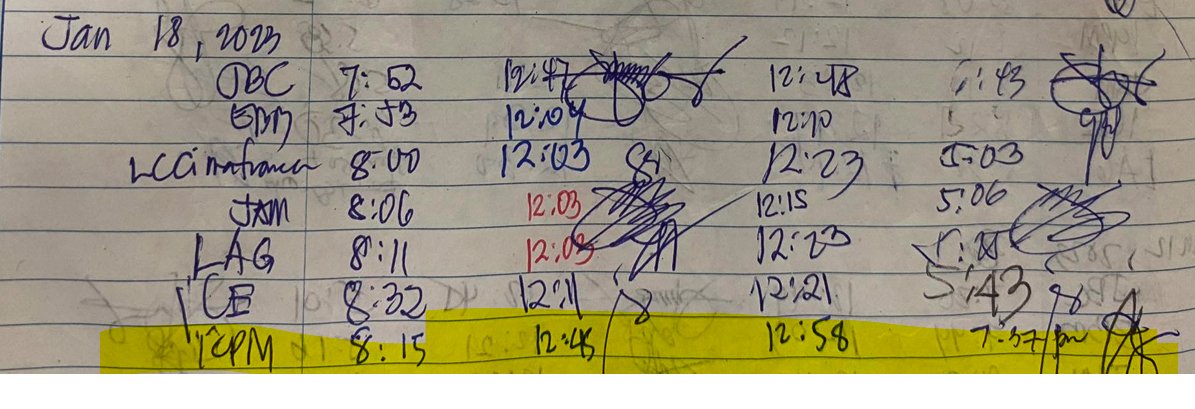 Jan 18, 2023
JBC 7:52 12:47 12:48 :43
EBB 7:53 12:04 12:10
8:00 12:03 12:23 5:03
JAM 8:06 12:03 12:15 5:06
LAG 8:11 12:03 12:23
CE 8:32 12:11 12:21 5:43
CPM 8:15 12:45 12:58 7:37 pm